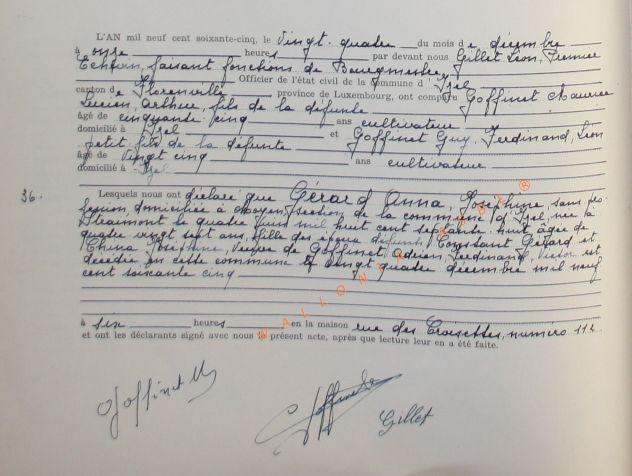 L'AN mil neuf cent soixante-cinq, le Vingt-quatre du mois de décembre
à onze heures par devant nous Gillet Léon, Premier
Echevin, faisant fonctions de Bourgmestre
Officier de l'état civil de la commune d'Izel
canton de Florenville province de Luxembourg, ont comparu Goffinet Maurice
Lucien, Arthur, fils de la défunte
âgé de cinquante cinq ans cultivateur
domicilié à Izel et Goffinet Guy, Ferdinand, Léon
petit fils de la défunte
âgé de vingt cinq ans cultivateur
domicilié à Izel
36. Lesquels nous ont déclaré que Gérard Anna, Joséphine, sans pro-
fession, domiciliée à Moyen, section de la commune d'Izel, née à
Straimont le quatre juin mil huit cent septante huit, âgée de
quatre vingt sept ans, fille des époux défunts Constant Gérard et
China Joséphine, Veuve de Goffinet Adrien, Ferdinand, Victor est
décédée en cette commune le vingt quatre décembre mil neuf
cent soixante cinq
à six heures en la maison rue des Croisettes, numéro 112
et ont les déclarants signé avec nous le présent acte, après que lecture leur en a été faite.
Goffinet M
Goffinet
Gillet
WALLONIE